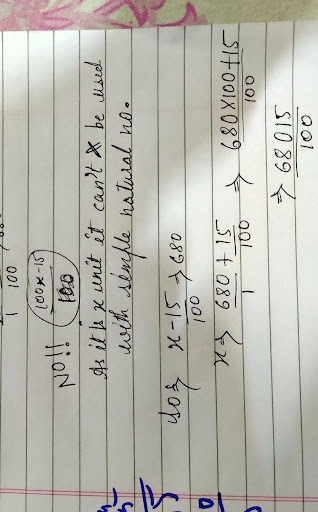 1 100
100x-15
100
NO!!
As it is x unit it can't x be used
with simple natural no.
so⇒ x-15/100 ⇒ 680
x⇒ 680/1 + 15/100 ⇒ 680x100+15/100
⇒ 68015/100